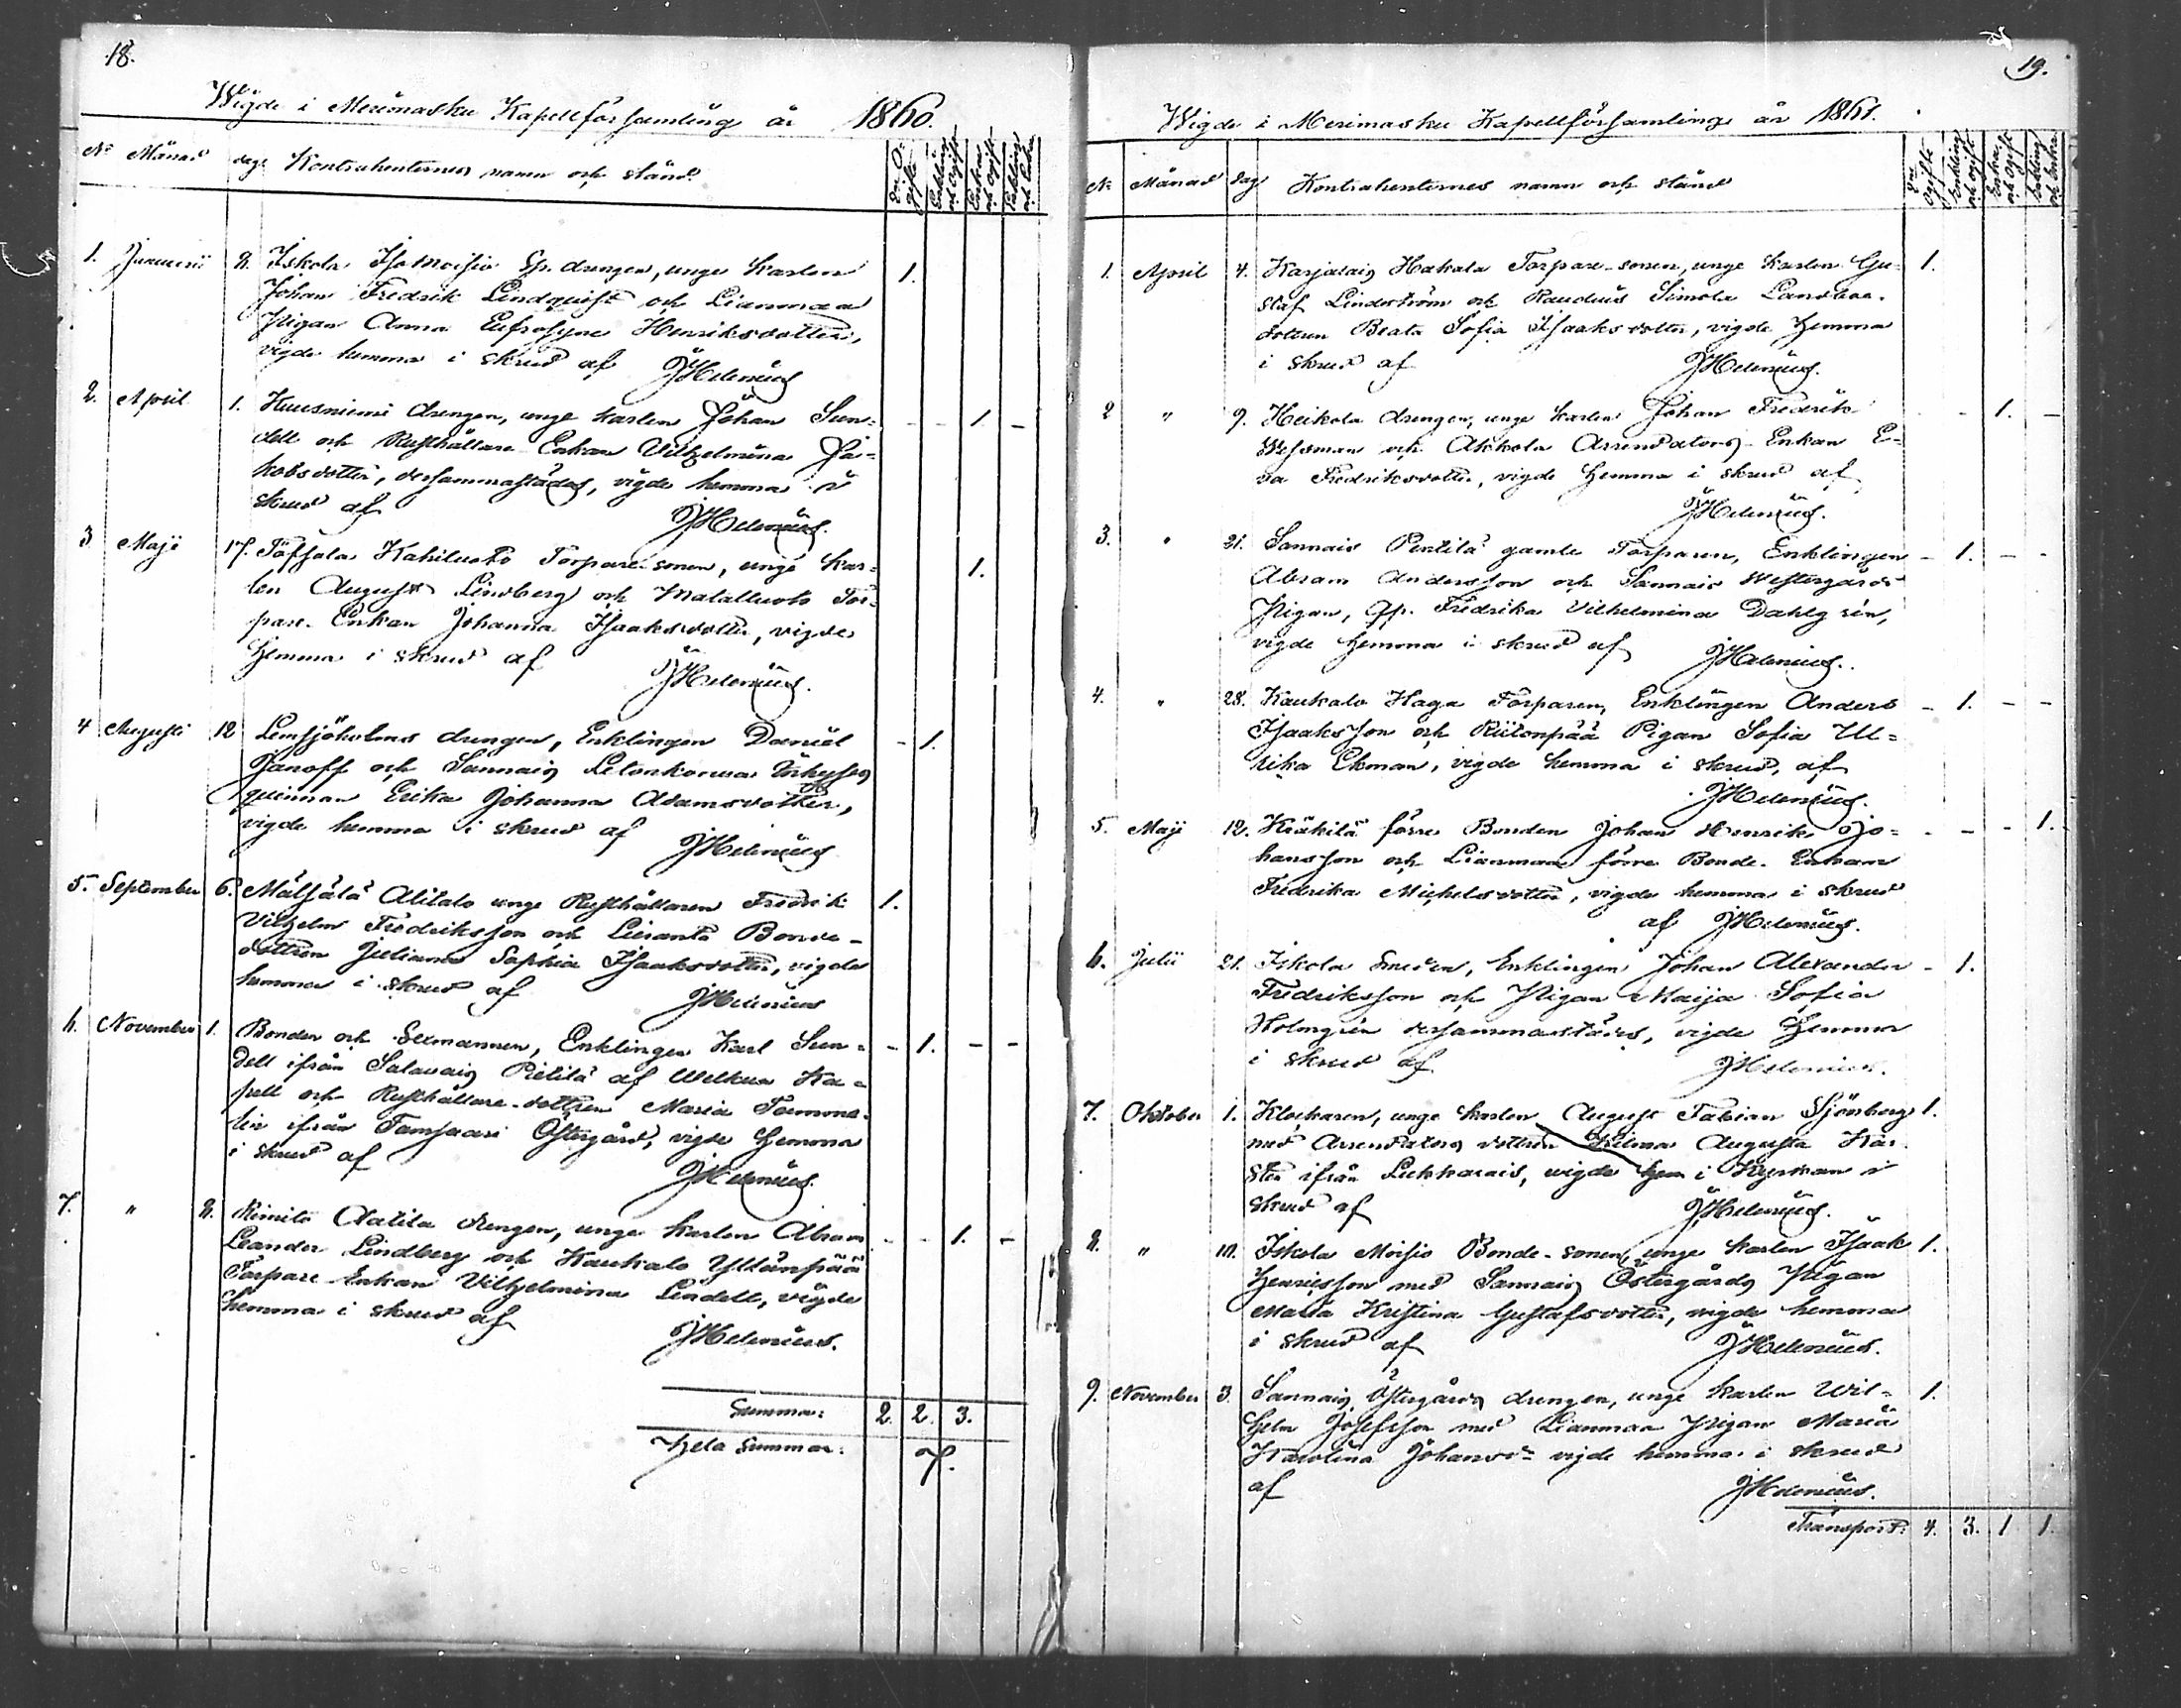 18.
Wigde i Merimasku Kapellförsamling år 1860.
No Månad dag Kontrahenternes namn och stånd
1. Januarii 8. Iskola Isomoisio Sp. drengen, unge karlen 1.
Johan Fredrik Lindquist och Lianmaa
Pigan Anna Eufrosyne Henriksdotter,
vigde hemma i skrud af JHelenius
2. April 1. Kuusniemi drengen, unge karlen Johan Sun= - - 1. -
dell och Rusthållare Enkan Vilhelmina Ja=
kobsdotter, dersammastädes, vigde hemma i
skrud af JHelenius.
3 Maji 17. Töfsala Kahiluoto Torpare-sonen, unge kar= 1.
len August Lindberg och Matalluoto Tor=
pare-Enkan Johanna Isaaksdotter, vigde
hemma i skrud af JHelenius.
4 Augusti 12 Lemsjöholms drengen, Enklingen Daniel - 1.
Janoff och Sannais Letonkorwa
quinnan Erika Johanna Adamsdotter,
vigde hemma i skrud af JHelenius
5. September 6. Mälsälä Alitalo unge Rusthållaren Fredrik 1.
Vilhelm Fredriksson och Lieranta Bonde-
dottren Juliana Sophia Isaaksdotter, vigde
hemma i skrud af JHelenius
6. November 1. Bonden och Sexmannen, Enklingen Karl Sun= - 1. - -
dell ifrån Salavais Pietilä af Welkua Ka=
pell och Rusthållare-dottren Maria Tammo-
lin ifrån Tamsaari Östergård, vigde hemma
i skrud af JHelenius.
7. " 8. Rimito Aatila drengen, unge karlen Abram - - 1. -
Leander Lindberg och Kaukalo Yltänpää
Torpare Enkan Vilhelmina Lindell, vigde
hemma i skrud af JHelenius.
Summa: 2. 2. 3.
Hela Summan: 7.
19.
Wigde i Merimasku Kapellförsamling år 1861.
No Månad dag Kontrahenternes namn och stånd
1. April 4. Karjalais Hakala Torpare-sonen, unge karlen Gu= 1.
staf Lindström och Raudais Simola Landboe-
dottren Beata Sofia Isaaksdotter, vigde hemma
i skrud af JHelenius.
2 " 9. Heikola drengen, unge karlen Johan Fredrik - - 1. -
Wessman och Akkola Arrendators-Enkan E=
va Fredriksdotter, vigde hemma i skrud af
JHelenius.
3. " 21. Sannais Pentilä gamle Torparen, Enklingen - 1. - -
Abram Andersson och Sannais Westergårds
Pigan, Sp. Fredrika Vilhelmina Dahlgrén,
vigde hemma i skrud af JHelenius.
4. " 28. Kaukalo Haga Torparen, Enklingen Anders - 1. - -
Isaaksson och Riilonpää Pigan Sofia Ul=
rika Ekman, vigde hemma i skrud, af
JHelenius.
5. Maji 12. Kräkilä förre Bonden Johan Henrik Jo= - - - 1.
hansson och Lianmaa förre Bonde-Enkan
Fredrika Michelsdotter, vigde hemma i skrud
af JHelenius.
6. Julii 21. Iskola Smeden, Enklingen Johan Alexander - 1.
Fredriksson och Pigan Maija Sofia
Holmgrén dersammastädes, vigde hemma
i skrud af JHelenius.
7. Oktober 1. Klockaren, unge karlen August Fabian Sjönberg 1.
med Arrendators dottren Wilma Augusta Kar
stén ifrån Lukkarais, vigde hem i Kyrkan i
skrud af JHelenius.
8. " 10. Iskola Moisio Bonde-sonen, unge karlen Isaak 1.
Henricsson med Sannais Östergårds Pigan
Maria Kristina Gustafsdotter, vigde hemma
i skrud af JHelenius.
9. November 3. Sannais Östergårds drengen, unge karlen Wil= 1.
helm Josefsson med Lianmaa Pigan Maria
Karolina Johansdr vigde hemma i skrud
af JHelenius.
Transport: 4. 3. 1 1.